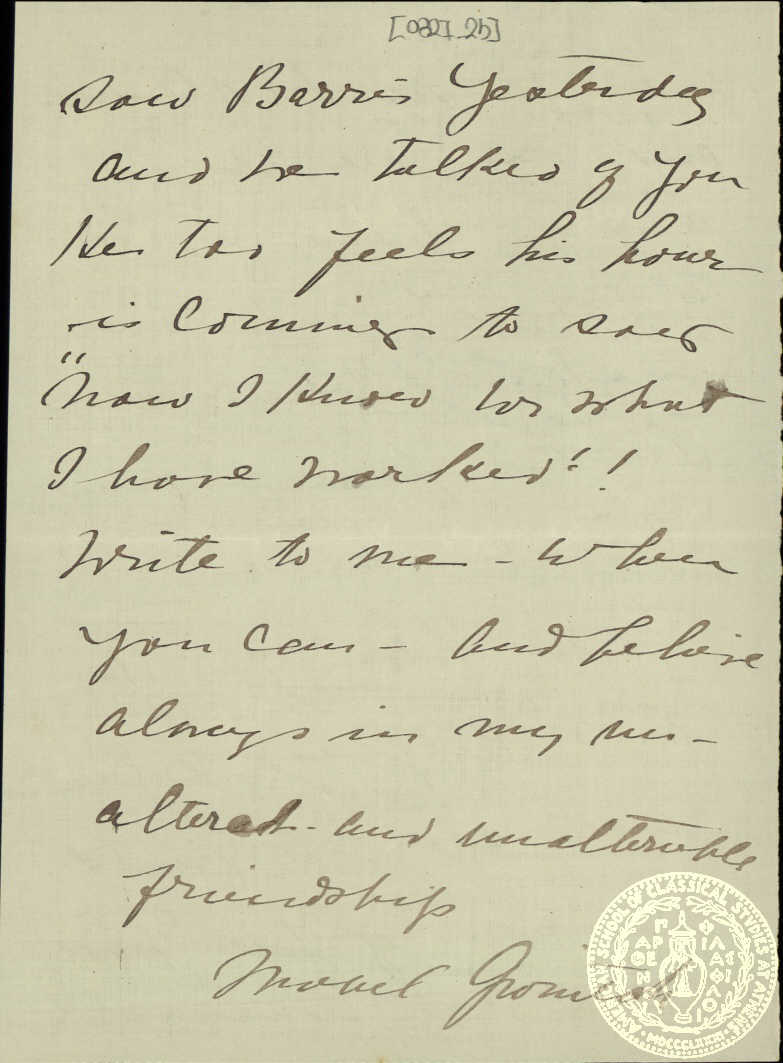 saw Barrès yesterday
and we talked of you
He too feels his hour
is coming to say
"now I know for what
I have worked"!
Write to me - when
you can - and believe
always in my un-
altered - and unalterable
friendship
Mabel Grouitch
AMERICAN SCHOOL OF CLASSICAL STUDIES AT ATHENS
MDCCCLXXXI